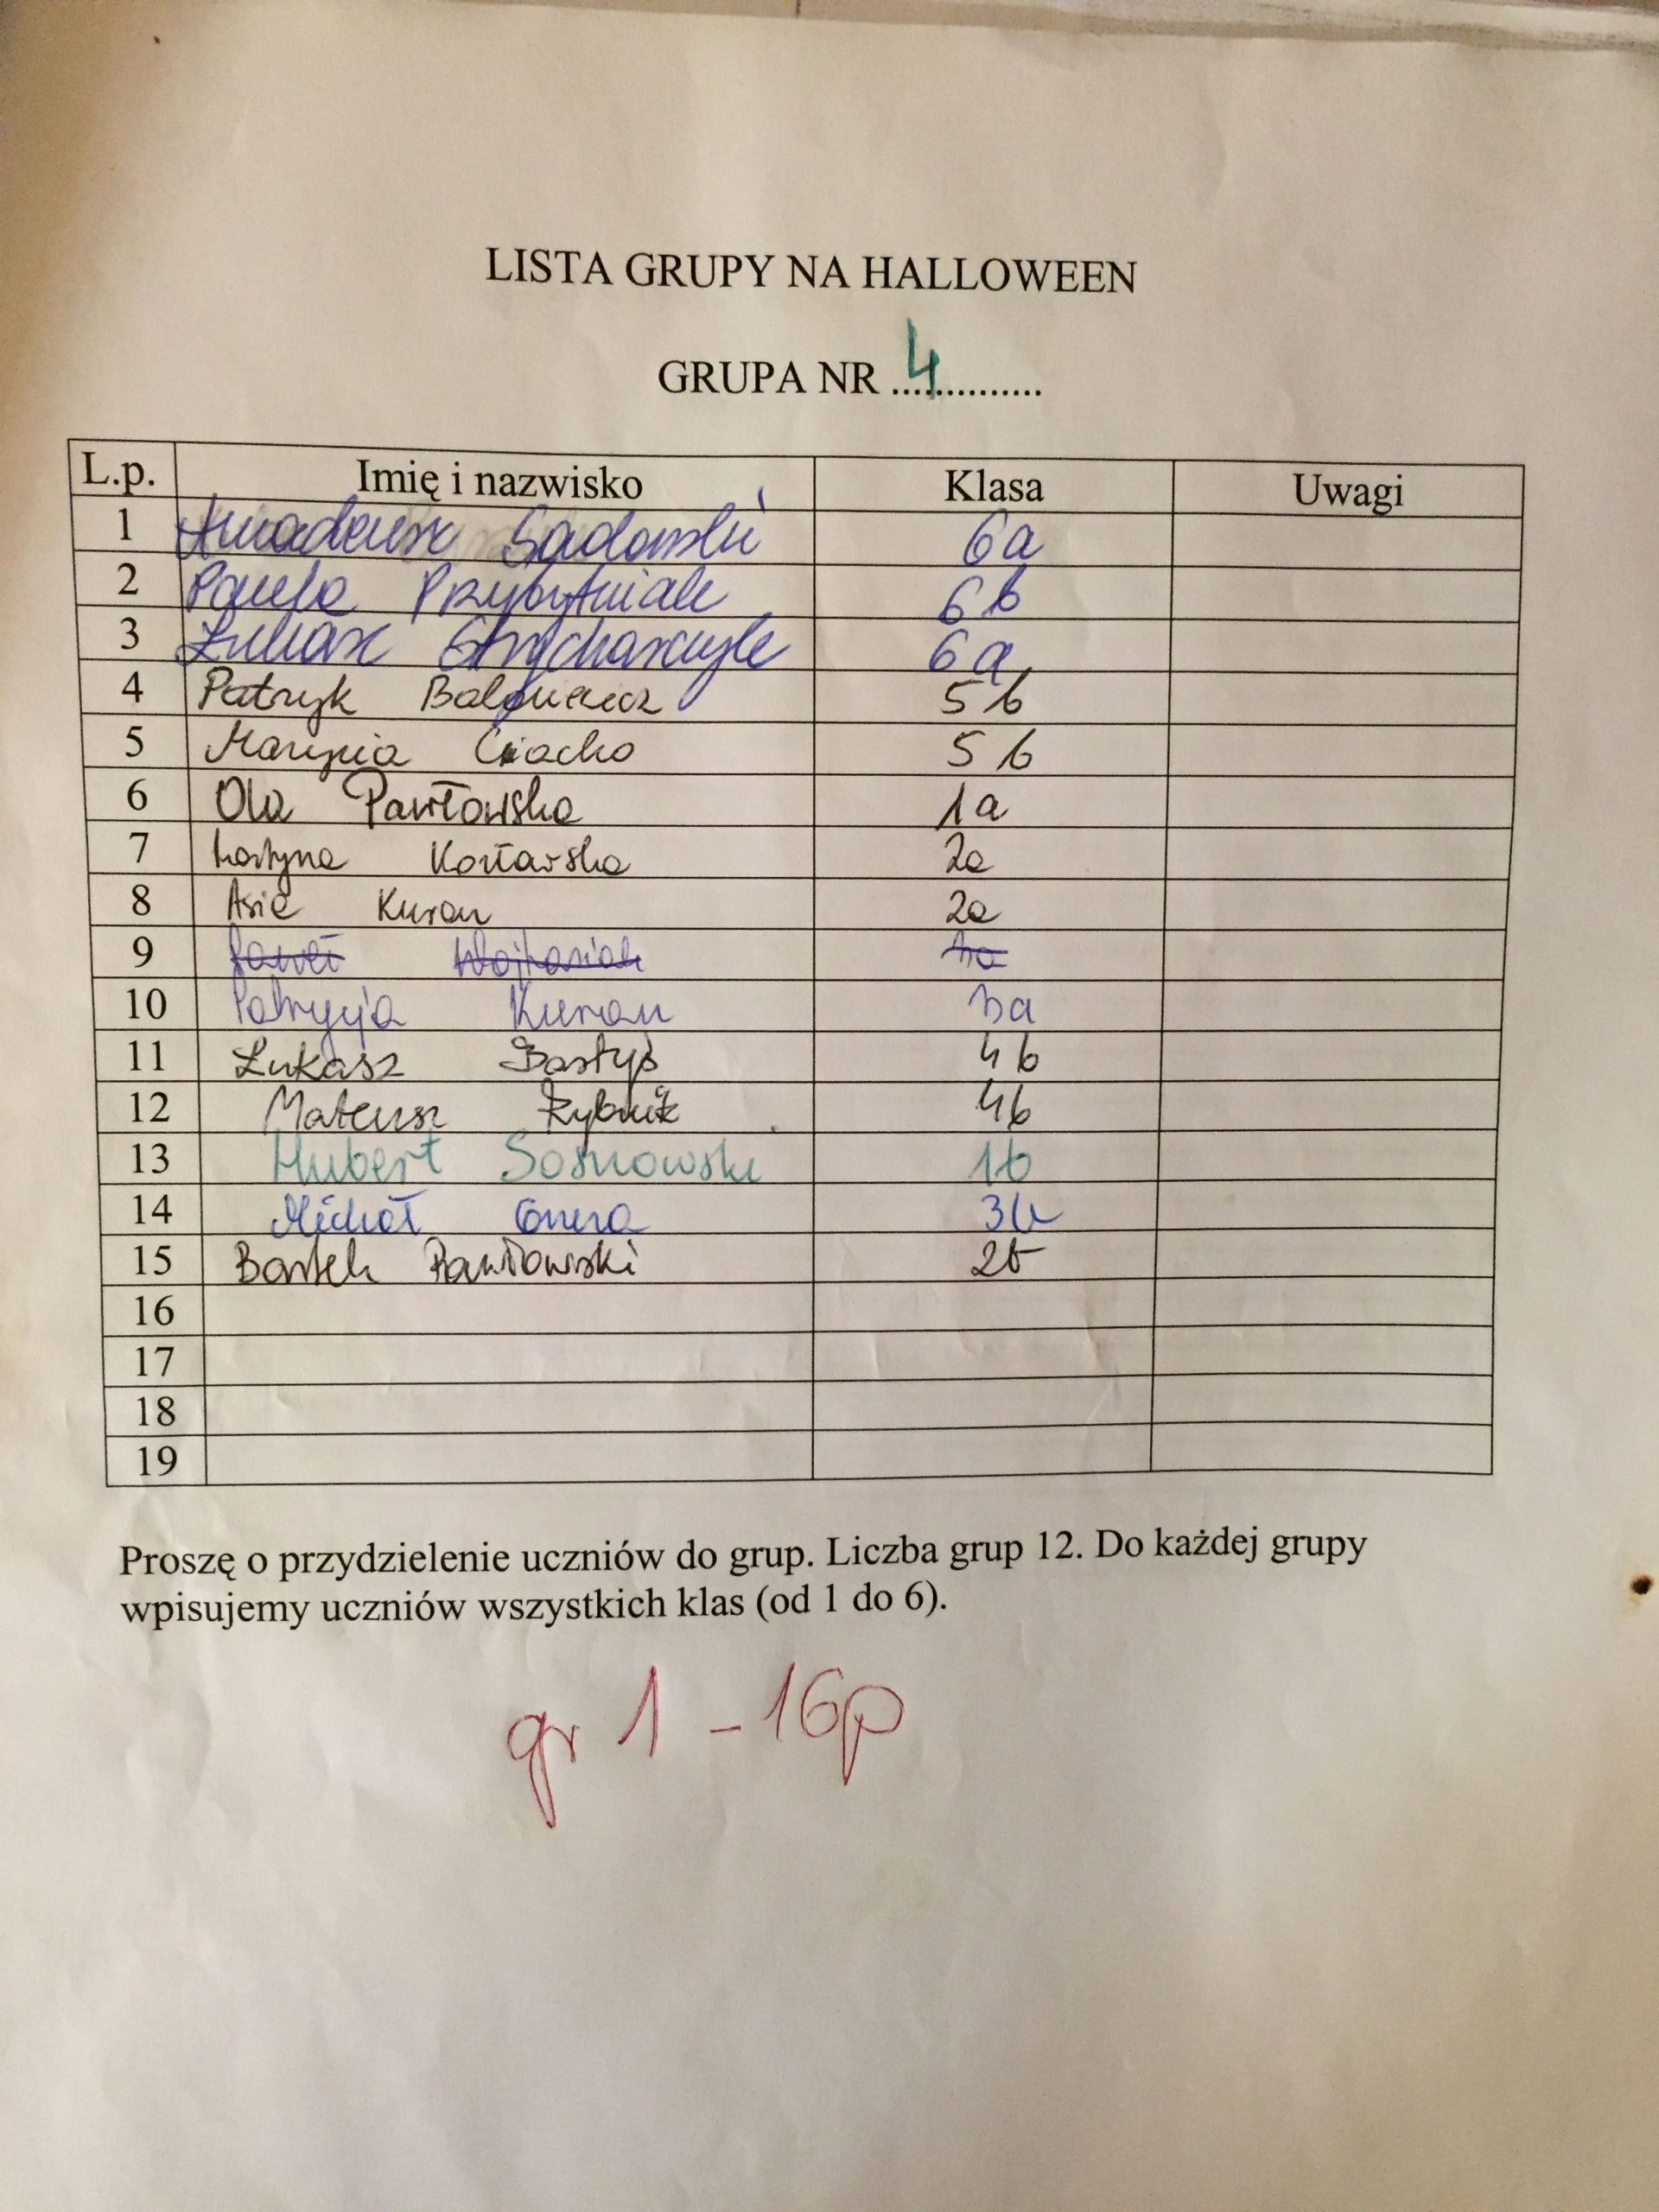 LISTA GRUPY NA HALLOWEEN
GRUPA NR ..4............
L.p. Imię i nazwisko Klasa Uwagi
1 Amadeusz Sadowski 6a
2 Paula Przybytniak 6b
3 Łukasz Strycharczyk 6a
4 Patryk 5b
5 Marysia Ciacho 5b
6 Ola Pawłowska 1a
7 Kozłowska 2a
8 Asia Kuran 2a
9 Paweł Wojtasiak
10 Patrycja Kuran 3a
11 Łukasz Bartyś 4b
12 Mateusz 4b
13 Hubert Sosnowski 1b
14 Michał 3b
15 Bartek Pawłowski 2b
16
17
18
19
Proszę o przydzielenie uczniów do grup. Liczba grup 12. Do każdej grupy
wpisujemy uczniów wszystkich klas (od 1 do 6).
gr 1 - 16p